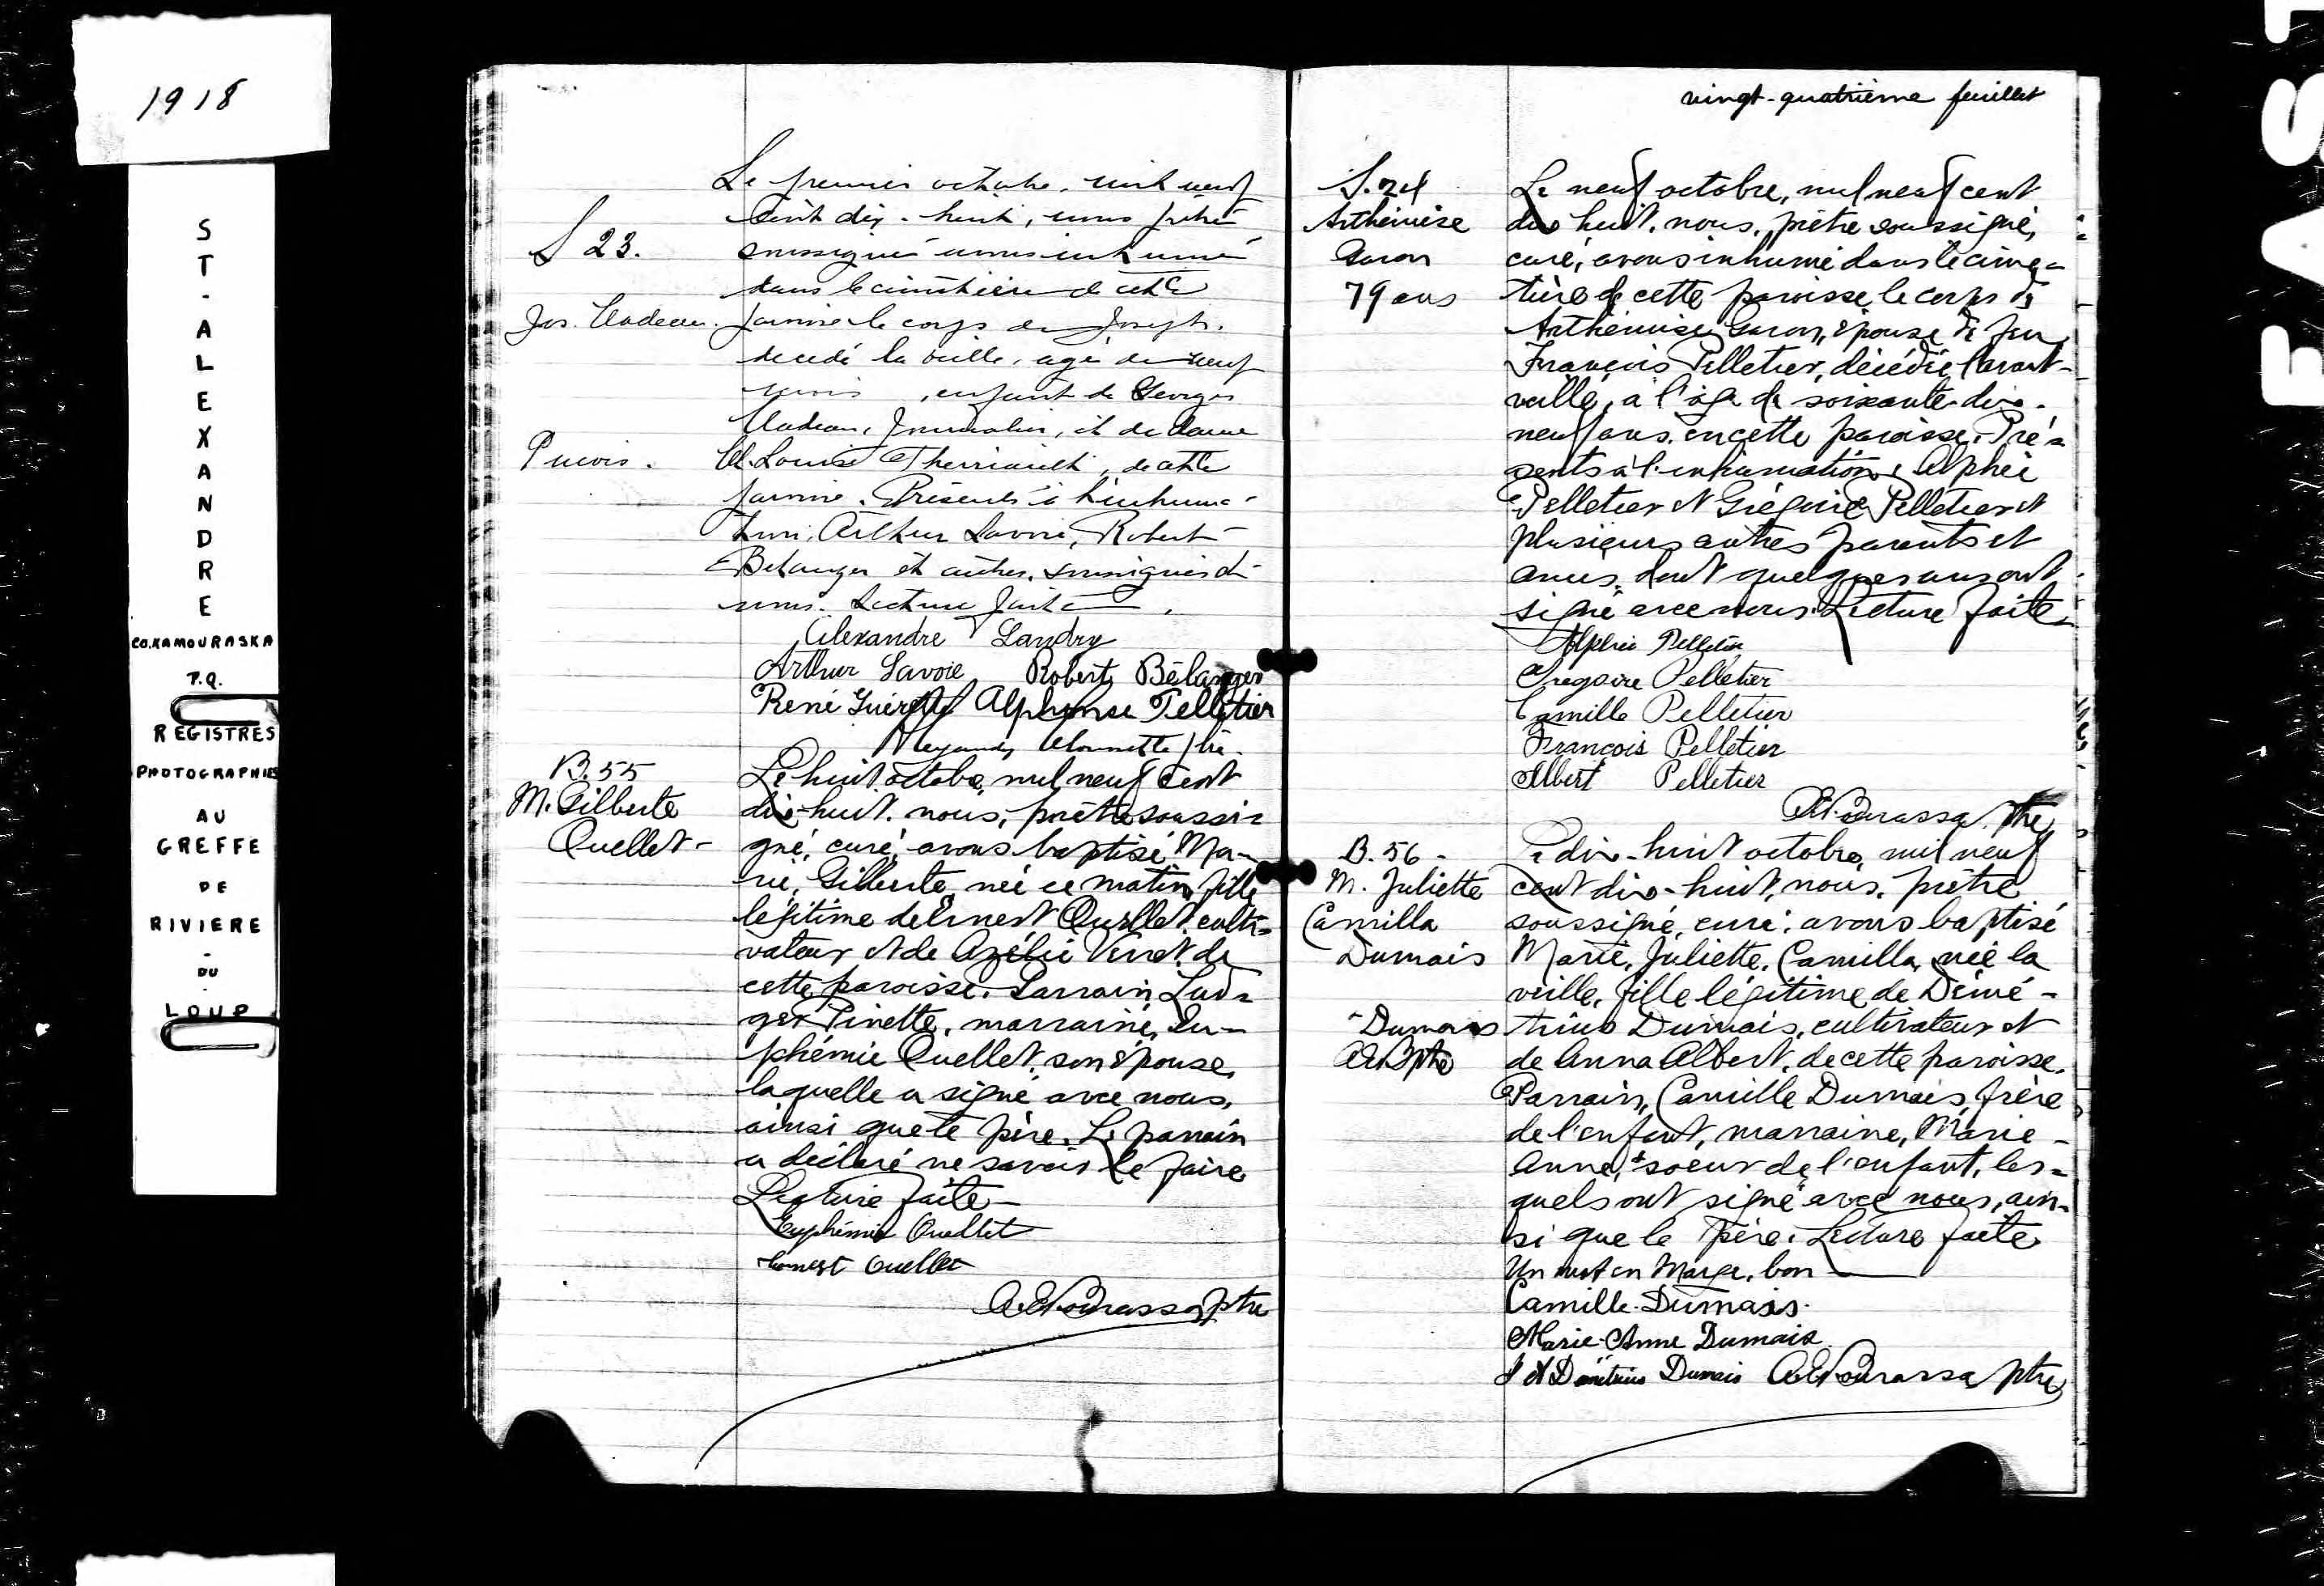 1918
ST-ALEXANDRE
CO. KAMOURASKA
P.Q.
REGISTRES
PHOTOGRAPHIES
AU
GREFFE
DE
RIVIERE
-
DU
LOUP
S 23.
Jos. Nadeau.
9 mois.
Le premier octobre, mil neuf
cent dix-huit, nous prêtre
soussigné avons inhumé
dans le cimetière de cette
paroisse le corps de Joseph,
décédé la veille, agé de neuf
mois, enfant de Georges
Nadeau, Journalier, et de dame
M. Louise Therriault, de cette
paroisse. Présents à l'inhuma-
tion, Arthur Lavoie, Robert
Belanger et autres, soussignés de
nous. Lecture faite.
Alexandre Landry
Arthur Savoie Robert Bélanger
René Guérette Alphonse Pelletier
ptre.
B. 55
M. Gilberte
Ouellet-
Le huit octobre, mil neuf cent
dix-huit, nous, prêtre soussi-
gné, curé, avons baptisé Ma-
rie, Gilberte, née ce matin, fille
légitime de Ernest Ouellet, culti-
vateur et de Azélie Viret, de
cette paroisse. Parrain, Lud-
ger Pinette, marraine, Eu-
phémie Ouellet, son épouse,
laquelle a signé avec nous,
ainsi que le père. Le parrain
a déclaré ne savoir le faire
Lecture faite-
Euphémie Ouellet
Ernest Ouellet
ptre
vingt-quatrième feuillet
S. 24
Arthémise
Garon
79 ans
Le neuf octobre, mil neuf cent
dix huit, nous, prêtre soussigné,
curé, avons inhumé dans le cime-
tière de cette paroisse le corps de
Arthémise Garon, épouse de feu
François Pelletier, décédée l'avant-
veille, à l'âge de soixante-dix-
neuf ans, en cette paroisse. Pré-
sents à l'inhumation, Alphée
Pelletier et Grégoire Pelletier et
plusieurs autres parents et
amis, dont quelques uns ont
signé avec nous. Lecture faite.
Alphée Pelletier
Gregoire Pelletier
Camille Pelletier
François Pelletier
Albert Pelletier
ptre
B. 56-
M. Juliette
Camilla
Dumais
-Dumais
Le dix-huit octobre, mil neuf
cent dix-huit, nous, prêtre
soussigné, curé, avons baptisé
Marie, Juliette, Camilla, née la
veille, fille légitime de Démé-
trius Dumais, cultivateur et
de Anna Albert, de cette paroisse.
Parrain, Camille Dumais, frère
de l'enfant, marraine, Marie-
Anne, soeur de l'enfant, les-
quels ont signé avec nous, ain-
si que le père. Lecture faite
Un mot en marge, bon
Camille Dumais
Marie-Anne Dumais
Démétrius Dumais ptre
BAS T